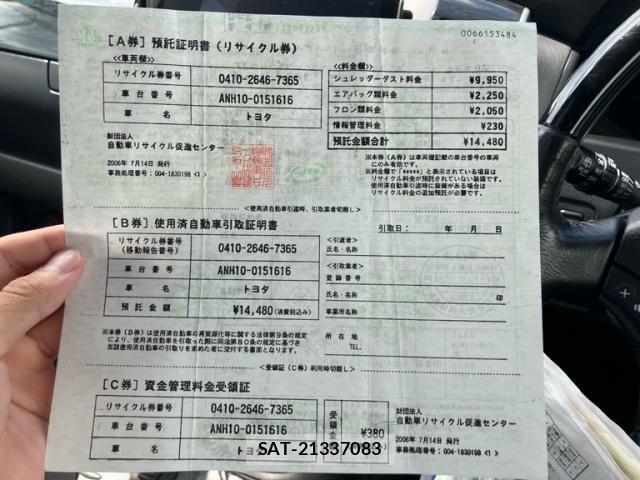 0066153484
[A券] 預託証明書(リサイクル券)
<<車両欄>>
リサイクル券番号 0410-2646-7365
車台番号 ANH10-0151616
車名 トヨタ
<<料金欄>>
シュレッダーダスト料金 ¥9,950
エアバッグ類料金 ¥2,250
フロン類料金 ¥2,050
情報管理料金 ¥230
預託金額合計 ¥14,480
財団法人
自動車リサイクル促進センター
2006年 7月14日 発行
事務処理番号:004-1830198 <1>
※本券(A券)は車両欄記載の車台番号の車両
にのみ有効です。
※料金欄で「*****」と表示されている項目は
リサイクル料金が預託されていない装備です。
使用済自動車引渡時に装備がある場合は
リサイクル料金の追加預託が必要です。
<使用済自動車引渡時、引取業者切離し>
[B券] 使用済自動車引取証明書
引取日: 年 月 日
リサイクル券番号
(移動報告番号) 0410-2646-7365
車台番号 ANH10-0151616
車名 トヨタ
預託金額 ¥14,480(消費税込み)
<引渡者>
氏名・名称
<引取業者>
登録番号
氏名・名称 印
事業所名
所在地
TEL.
※本券(B券)は使用済自動車の再資源化等に関する法律第9条の規定
により、使用済自動車を引取った際に同法第80条の規定に基づき
当該使用済自動車の引取りを求めた者に交付する書面となります。
<受領証(C券)利用時切離し>
[C券] 資金管理料金受領証
リサイクル券番号 0410-2646-7365
車台番号 ANH10-0151616
車名 トヨタ
受領金 ¥380
財団法人
自動車リサイクル促進センター
2006年 7月14日 発行
事務処理番号:004-1830198 <1>
SAT-21337083